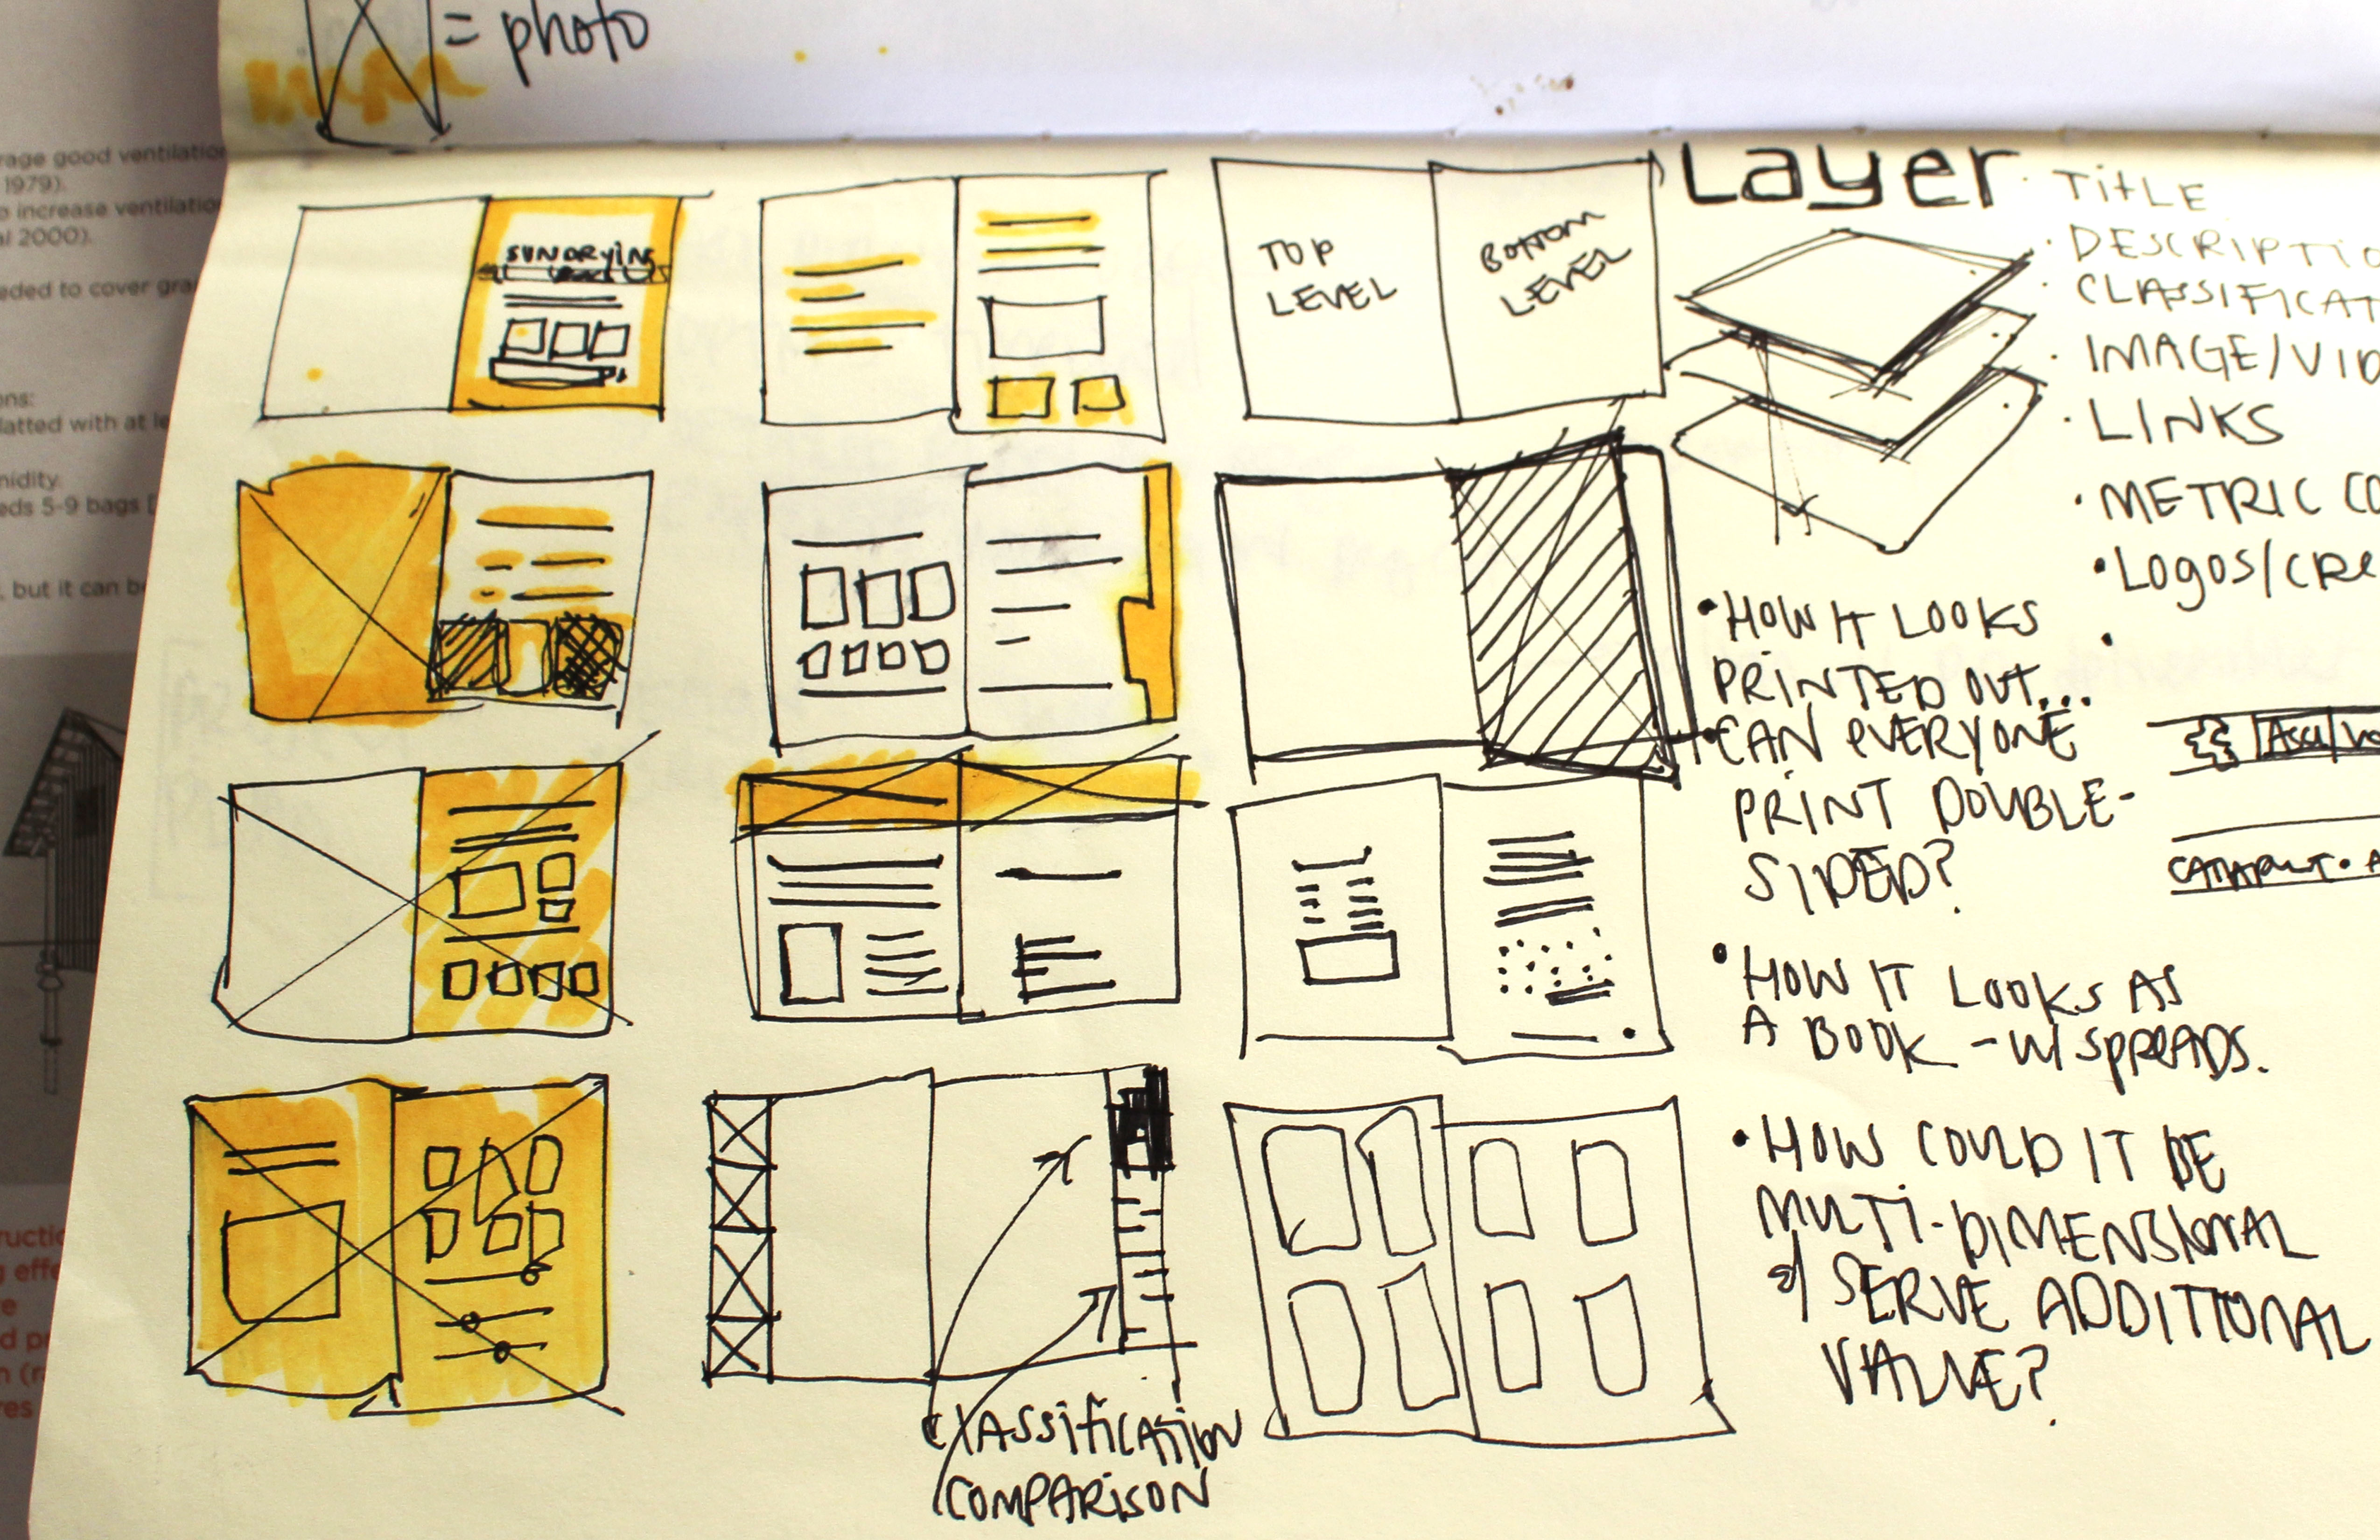 = photo
rage good ventilation
1979).
o increase ventilation
al 2000).
eded to cover gra
ons:
latted with at le
midity.
eds 5-9 bags [
, but it can b
ructio
g effe
e
d p
n (r
res
SUNDRYING
TOP
LEVEL
BOTTOM
LEVEL
Layer
· TITLE
· DESCRIPTIO
· CLASSIFICAT
· IMAGE/VID
· LINKS
· METRIC CO
• LOGOS/CRE
•
• HOW IT LOOKS
PRINTED OUT...
CAN EVERYONE
PRINT DOUBLE-
SIDED?
• HOW IT LOOKS AS
A BOOK - W/ SPREADS.
• HOW COULD IT BE
MULTI-DIMENSIONAL
&/ SERVE ADDITIONAL
VALUE?
CATAPULT • A
CLASSIFICATION
COMPARISON